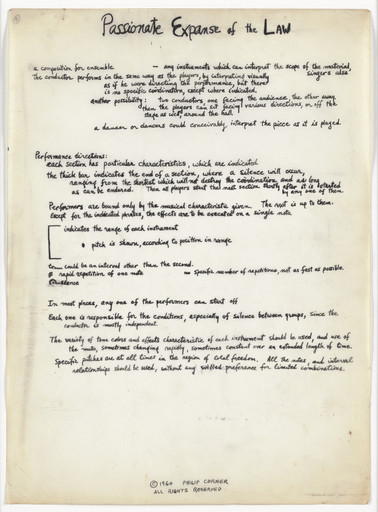 Passionate Expanse of the LAW
a composition for ensemble -- any instruments which can interpret the scope of the material,
singers also
The conductor performs in the same way as the players, by interpreting visually
as if he were directing the performance, but there
is no specific coordination, except where indicated.
another possibility: two conductors, one facing the audience, the other away
then the players can sit facing various directions, or off the
stage as well, around the hall.
a dancer or dancers could conceivably, interpret the piece as it is played.
Performance directions:
each section has particular characteristics, which are indicated
the thick bar indicates the end of a section, where a silence will occur,
ranging from the shortest which will not destroy the combination and as long
as can be endured. Then all players start that next section shortly after it is started
by any one of them.
Performers are bound only by the musical characteristic given. The rest is up to them.
Except for the indicated phrases, the effects are to be executed on a single note
indicates the range of each instrument
pitch is shown, according to position in range
could be an interval other than the second.
rapid repetition of one note
specific number of repetitions, not as fast as possible.
silence
In most places, any one of the performers can start off
Each one is responsible for the conditions, especially of silence between groups, since the
conductor is mostly independent.
The variety of tone colors and effects characteristic of each instrument should be used, and use of
the mute, sometimes changing rapidly, sometimes constant over an extended length of time.
Specific pitches are at all times in the region of total freedom. All the notes, and interval
relationships should be used, without any willful preference for limited combinations.
© 1960 PHILIP CORNER
ALL RIGHTS RESERVED